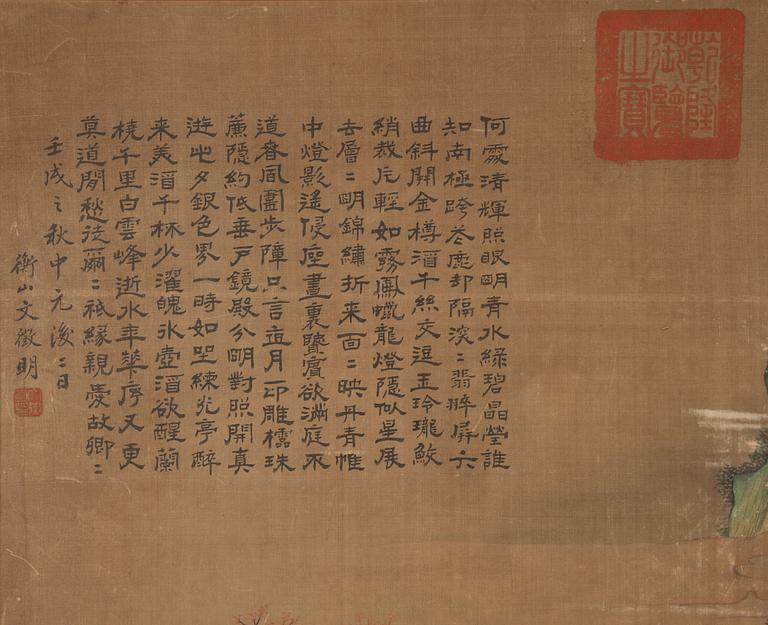 乾隆御覽之寶
何處清輝照眼明青水綠碧晶瑩誰
知南極跨 鹿却隔溪〻翡翠屏六
曲斜開金樽酒千絲交逗玉玲瓏鮫
綃裁尺輕如霧鳳蠟龍燈隱似星展
去層〻明錦繡折来面〻映丹青帷
中燈影遙侵座畫裏 賓欲滿庭不
道春風圖步障只言 月印雕櫺珠
簾隱約低垂戸鏡殿分明對照開真
遊 夕銀色界一時如 練光亭醉
来美酒千杯少濯魄氷壺酒欲醒蘭
橈千里白雲峰逝水年華序又更
莫道閒愁徒爾〻祗緣親愛故卿〻
壬戌之秋中元後二日
衡山文徵明